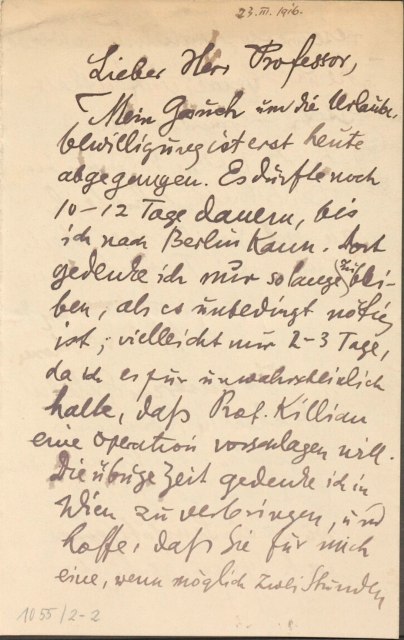 23. III. 1916.
Lieber Herr Professor,
Mein Gesuch um die Urlaubs-
bewilligung ist erst heute
abgegangen. Es dürfte noch
10–12 Tage dauern, bis
ich nach Berlin kann. Dort
gedenke ich nur solange (zu) blei-
ben, als es unbedingt nötig
ist, vielleicht nur 2–3 Tage,
da ich es für unwahrscheinlich
halte, daß Prof. Killian
eine Operation vorschlagen will.
Die übrige Zeit gedenke ich in
Wien zu verbringen, und
hoffe, daß Sie für mich
eine, wenn möglich zwei Stunden
1055/2-2